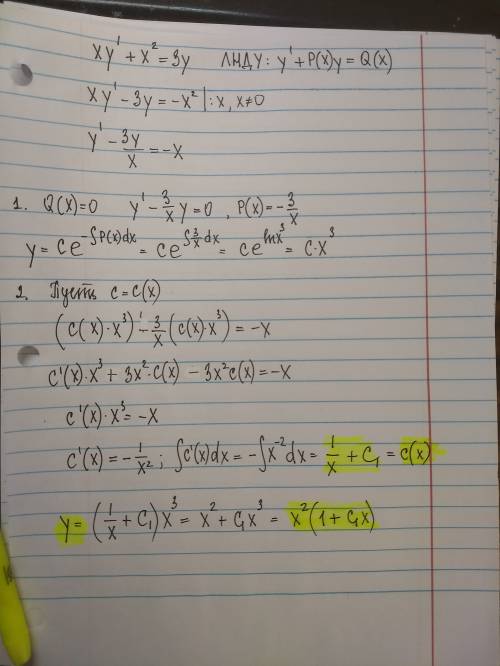 xy' + x² = 3y ЛНДУ: y' + P(x)y = Q(x)
xy' - 3y = -x² | :x, x≠0
y' - 3y/x = -x
1. Q(x)=0 y' - 3/x y = 0, P(x) = -3/x
y = ce^(-∫P(x)dx) = ce^(∫3/x dx) = ce^(lnx³) = c·x³
2. Пусть c = c(x)
(c(x)·x³)' - 3/x (c(x)·x³) = -x
c'(x)·x³ + 3x²·c(x) - 3x²c(x) = -x
c'(x)·x³ = -x
c'(x) = -1/x²; ∫c'(x)dx = -∫x⁻²dx = 1/x + C₁ = c(x)
y = (1/x + C₁)x³ = x² + C₁x³ = x²(1 + C₁x)